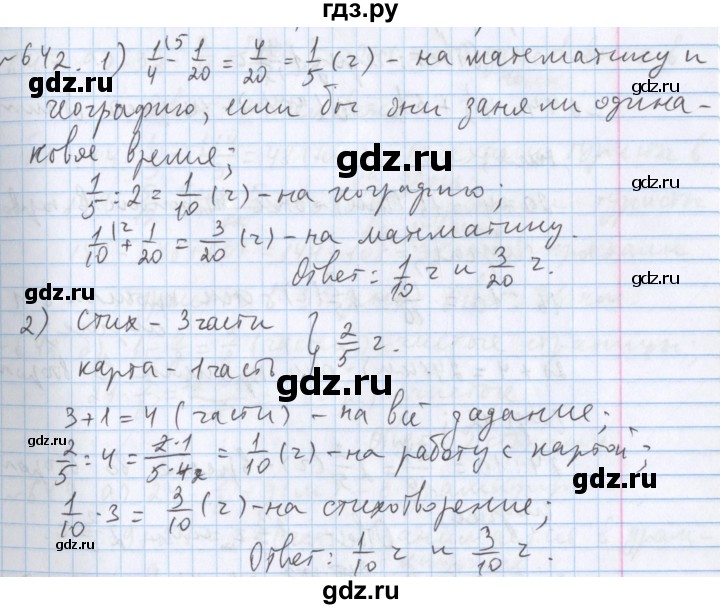 гдз.ру
№642. 1) 1/4 (5 - 1/20 = 4/20 = 1/5 (г) - на математику и
географию, если бы они заняли одина-
ковое время;
1/5 : 2 = 1/10 (г) - на географию;
1/10 (2 + 1/20 = 3/20 (г) - на математику.
Ответ: 1/10 г и 3/20 г.
2) Стих - 3 части } 2/5 г.
карта - 1 часть
3+1=4 (части) - на всё задание;
2/5 : 4 = 2·1/5·4 2 = 1/10 (г) - на работу с картой;
1/10 · 3 = 3/10 (г) - на стихотворение;
Ответ: 1/10 г и 3/10 г.
gdz.ru
gdz.ru
gdz.ru
gdz.ru
gdz.ru
gdz.ru
gdz.ru
gdz.ru
gdz.ru
gdz.ru
gdz.ru